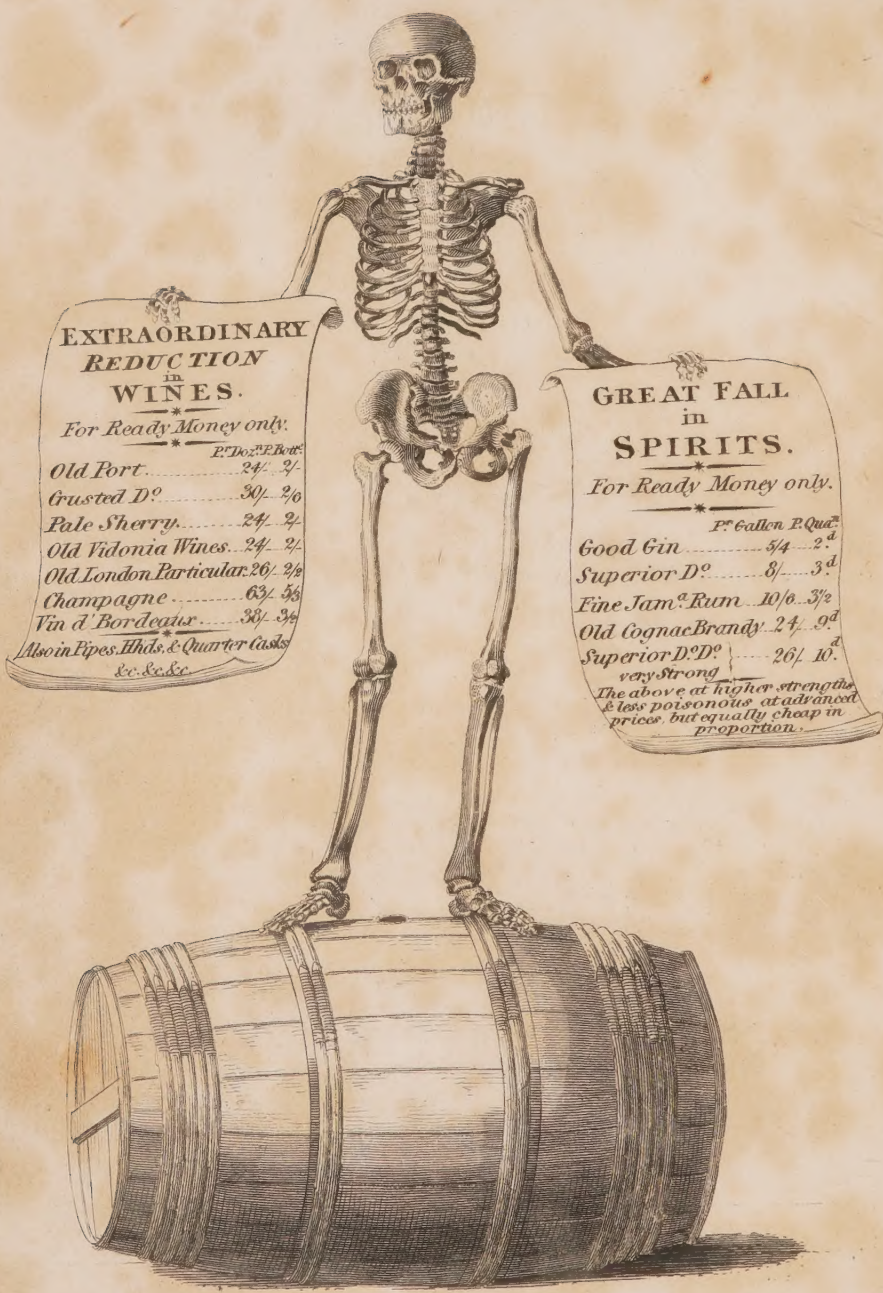 EXTRAORDINARY
REDUCTION
in
WINES.
For Ready Money only.
Pr. Dozn. P. Bottle.
Old Port........24/- 2/-
Crusted Do......30/- 2/6
Pale Sherry.......24/- 2/-
Old Vidonia Wines..24/- 2/-
Old London Particular.26/- 2/2
Champagne..........63/- 5/3
Vin d'Bordeaux.....38/- 3/2
Also in Pipes, Hhds, & Quarter Casks
&c. &c. &c.
GREAT FALL
in
SPIRITS.
For Ready Money only.
Pr. Gallon P. Quarn.
Good Gin..........5/4...2.d
Superior Do.......8/-...3.d
Fine Jama. Rum...10/6...3½
Old Cognac Brandy..24/-..9.d
Superior Do. Do. }.....26/- 10.d
very Strong
The above at higher strengths
& less poisonous at advanced
prices, but equally cheap in
proportion.